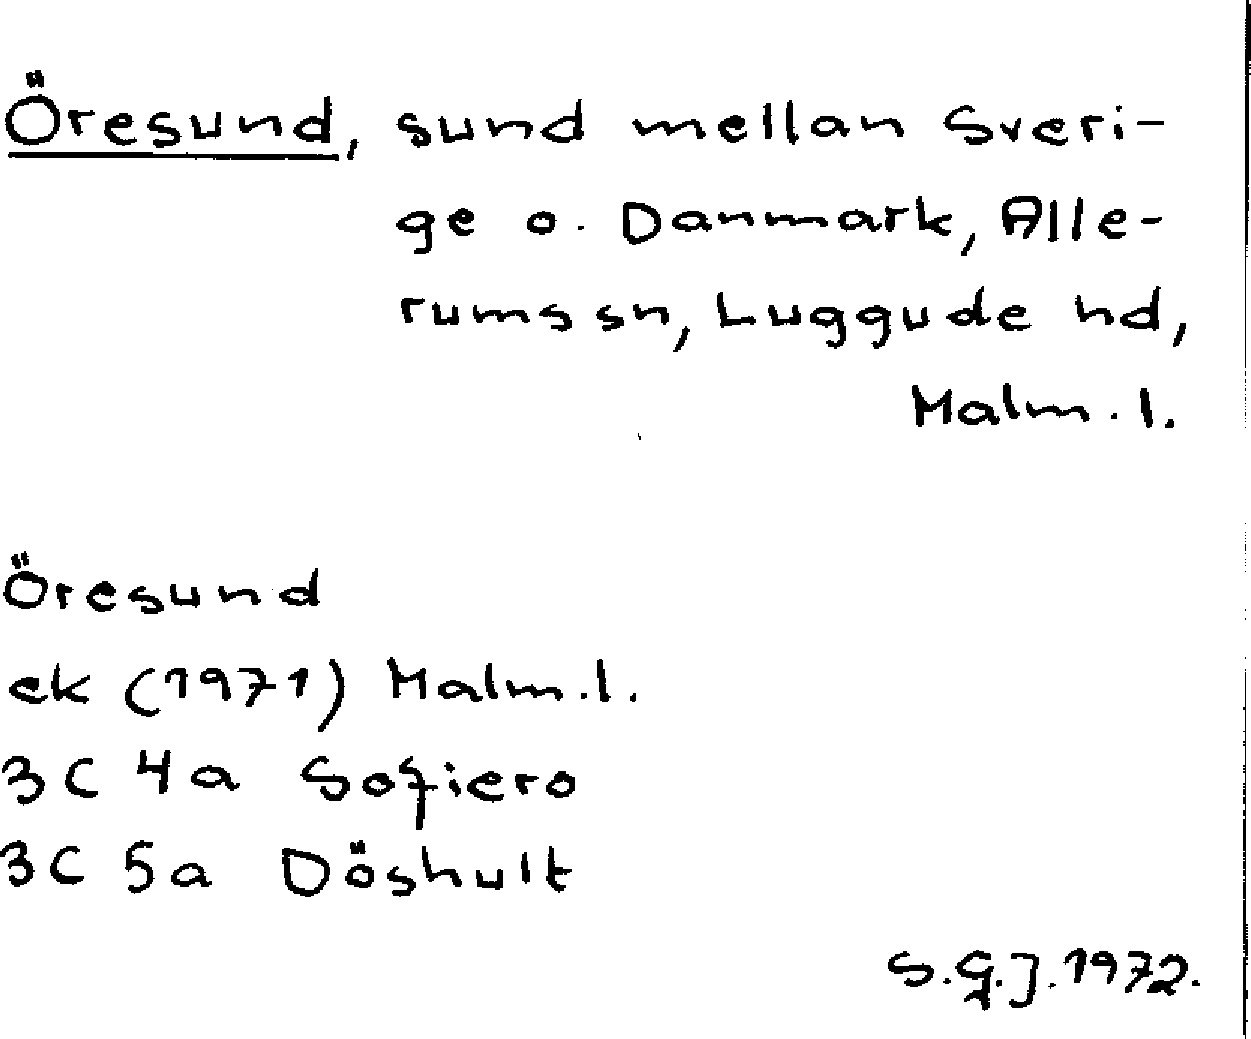 Öresund, sund mellan Sveri-
ge o. Danmark, Alle-
rums sn, Luggude hd,
Malm. l.
Öresund
ek (1971) Malm. l.
3C 4a Sofiero
3C 5a Döshult
S.G.J. 1972.